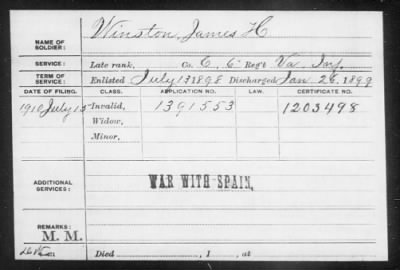 NAME OF SOLDIER: Winston, James H
SERVICE: Late rank, Co. C, 6" Reg't Va. Inf.
TERM OF SERVICE: Enlisted July 13 1898 Discharged Jan. 26, 1899
DATE OF FILING. CLASS. APPLICATION NO. LAW. CERTIFICATE NO.
1910 July 15 Invalid, 1391553 1203498
Widow,
Minor,
ADDITIONAL SERVICES: WAR WITH SPAIN.
REMARKS:
M. M.
Died , 1 , at